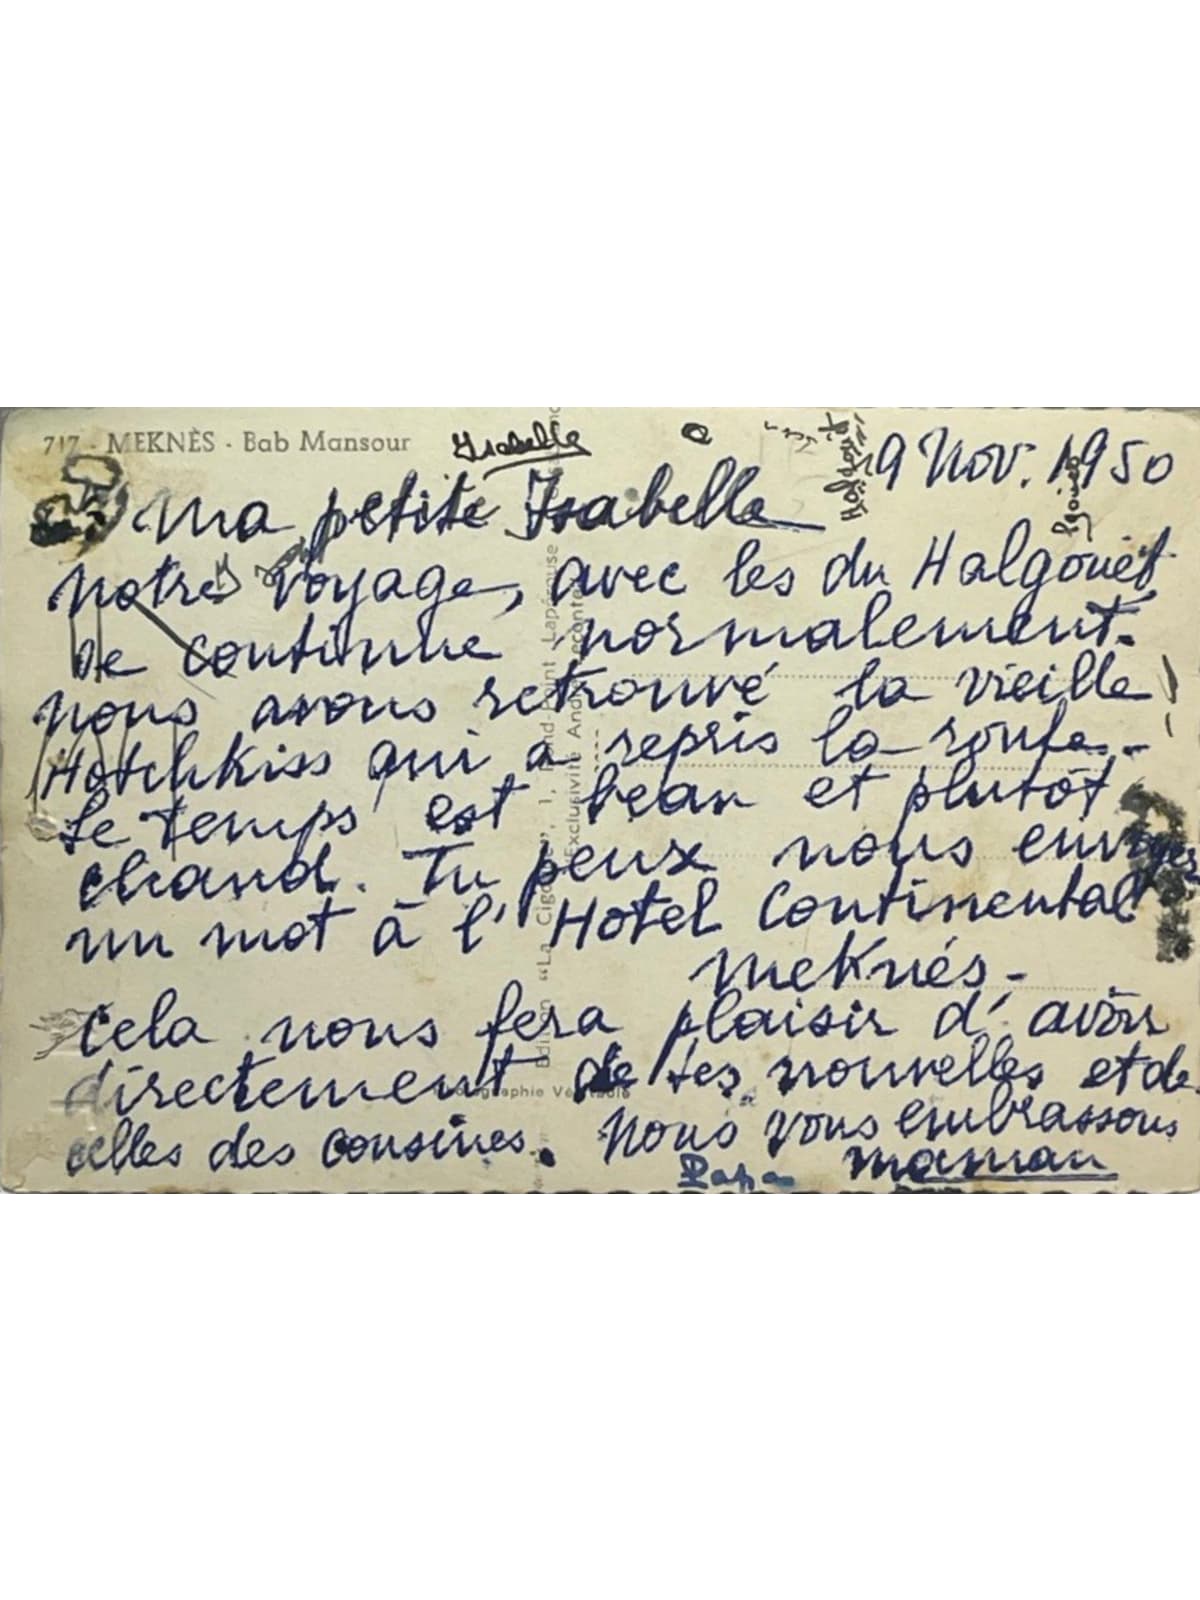 717 - MEKNÈS - Bab Mansour
Isabelle
9 Nov. 1950
Ma petite Isabelle
Notre voyage, avec les du Halgouët
se continue normalement.
nous avons retrouvé la vieille
Hotchkiss qui a repris la route.
Le temps est beau et plutôt
chaud. Tu peux nous envoyer
un mot à l'Hotel Continental
Meknés -
Cela nous fera plaisir d'avoir
directement de tes nouvelles et de
celles des cousines. Nous vous embrassons
Papa maman
Edition "La Cigogne", 1, Rond-Point Lapérouse
Exclusivité André